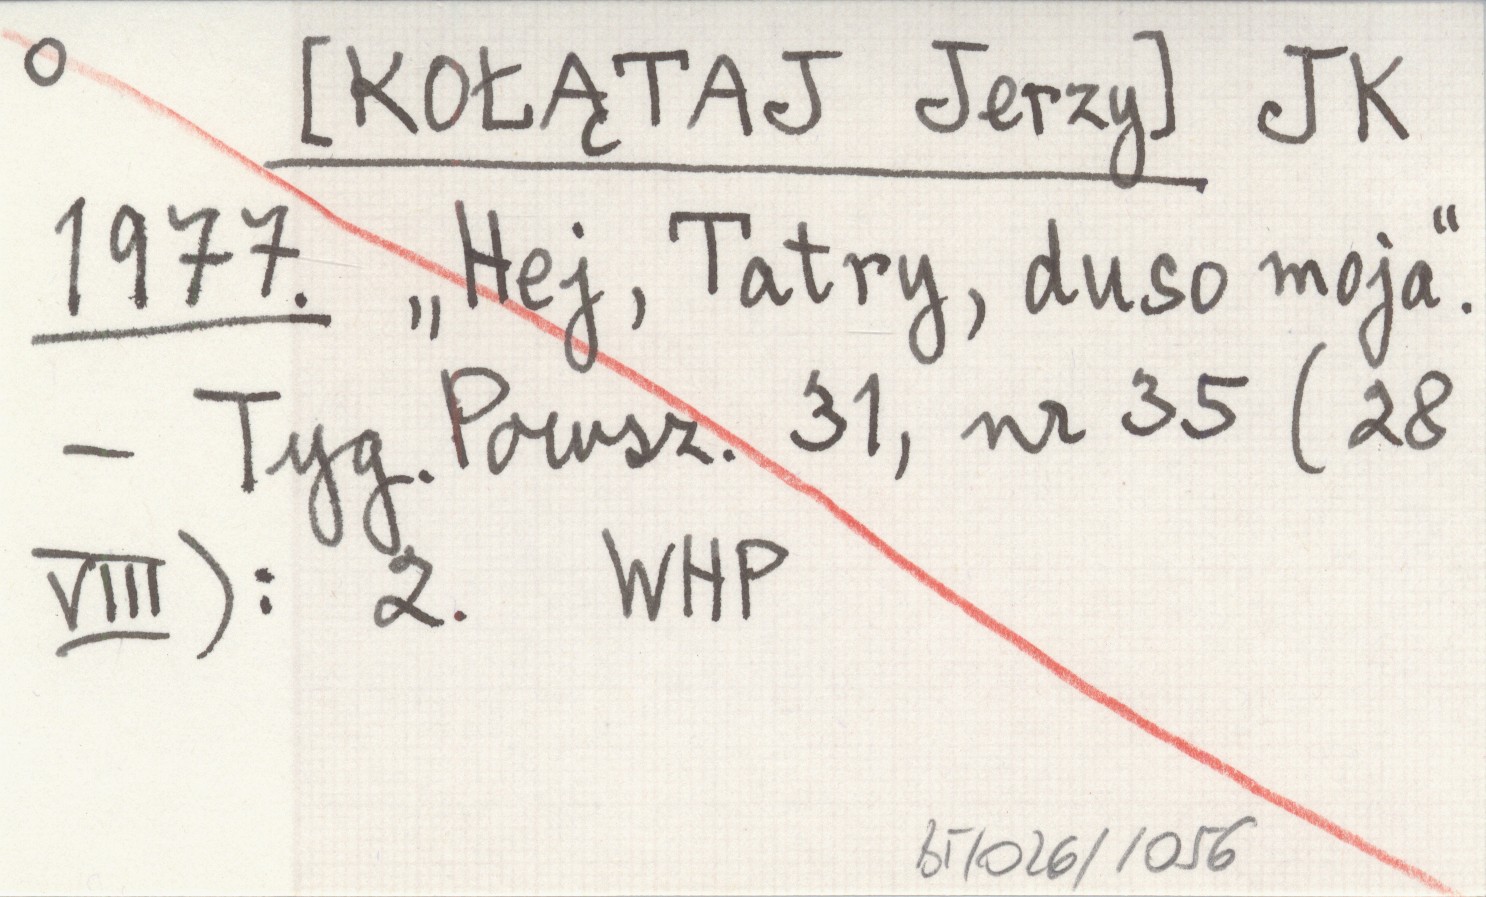 o [KOŁĄTAJ Jerzy] JK
1977. „Hej, Tatry, duso moja“.
— Tyg. Powsz. 31, nr 35 (28
VIII): 2. WHP
BT/026/1056